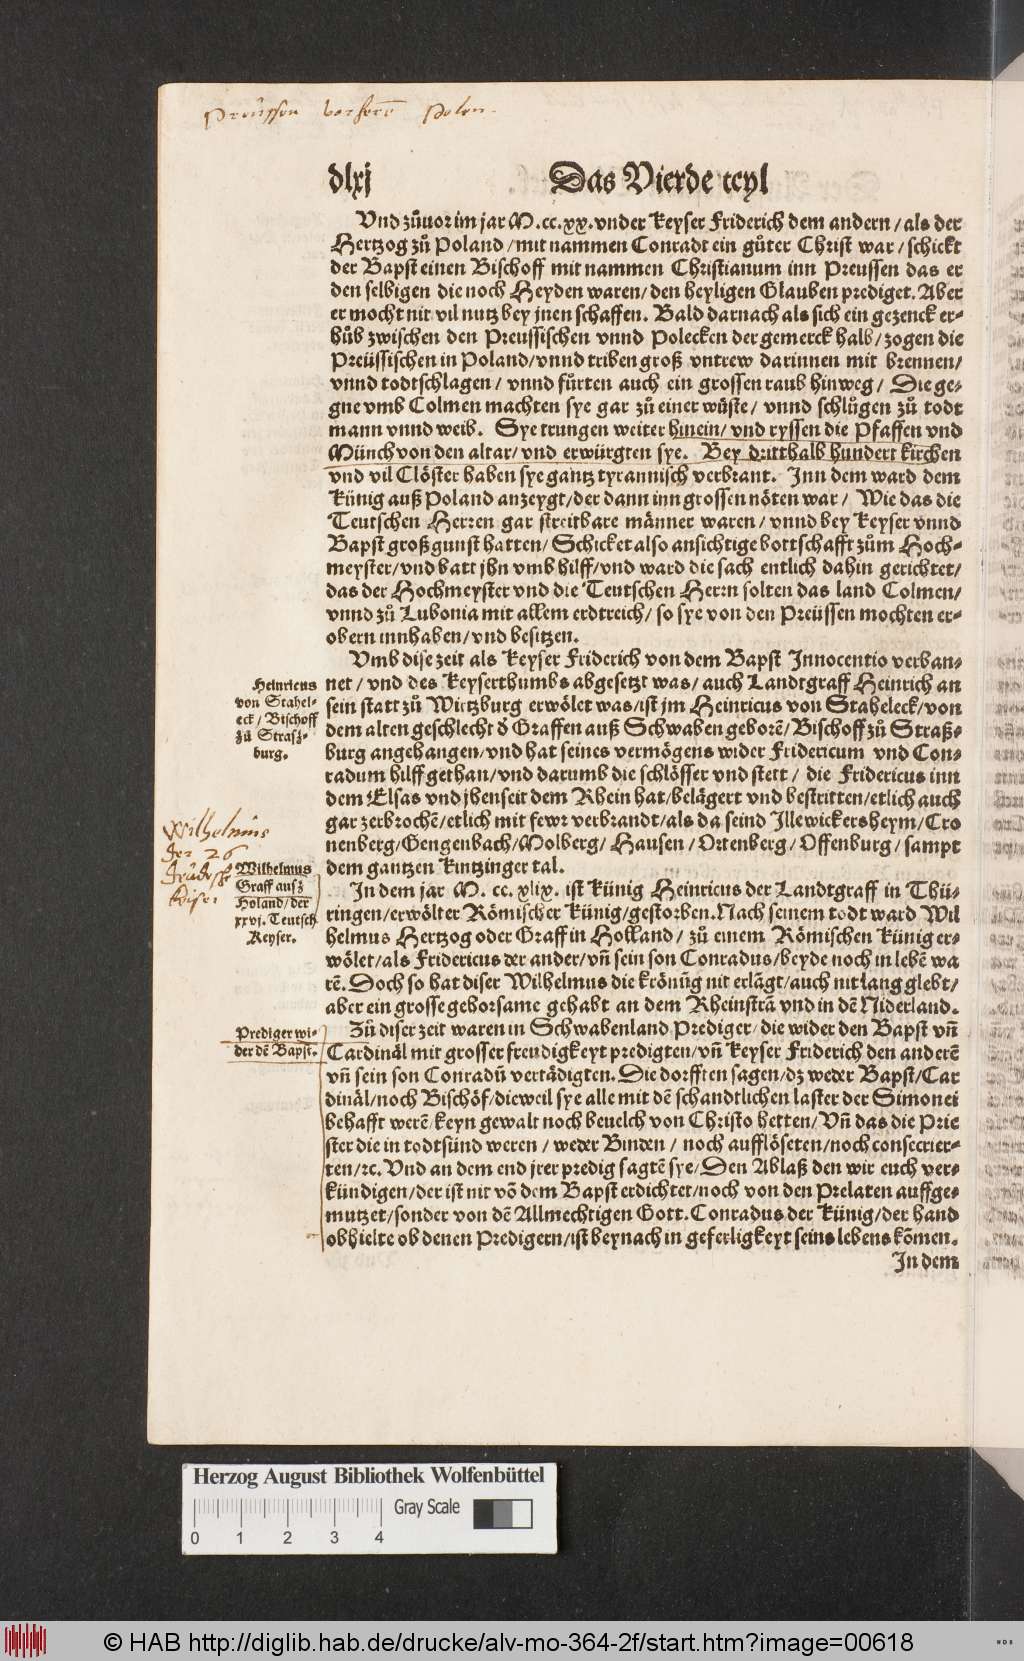 Preüssen verhere Polen.
dlxj Das Vierde teyl
Vnd zůuor im jar M. cc. xx. vnder Keyser Friderich dem andern / als der
Hertzog zů Poland / mit nammen Conradt ein gůter Christ war / schickt
der Bapst einen Bischoff mit nammen Christianum inn Preussen das er
den selbigen die noch Heyden waren / den heyligen Glauben prediget. Aber
er mocht nit vil nutz bey jnen schaffen. Bald darnach als sich ein gezenck er-
hůb zwischen den Preussischen vnnd Polecken der gemerck halb / zogen die
Preüssischen in Poland / vnnd triben groß vntrew darinnen mit brennen /
vnnd todtschlagen / vnnd fůrten auch ein grossen raub hinweg / Die ge-
gne vmb Colmen machten sye gar zů einer wüste / vnnd schlůgen zů todt
mann vnnd weib. Sye trungen weiter hinein / vnd ryssen die Pfaffen vnd
Münch von den altar / vnd erwürgten sye. Bey dritthalb hundert kirchen
vnd vil Clöster haben sye gantz tyrannisch verbrant. Inn dem ward dem
Künig auß Poland anzeygt / der dann inn grossen nöten war / Wie das die
Teutschen Herren gar streitbare männer waren / vnnd bey Keyser vnnd
Bapst groß gunst hatten / Schicket also ansichtige bottschafft zům Hoch-
meyster / vnd batt jhn vmb hilff / vnd ward die sach entlich dahin gerichtet /
das der Hochmeyster vnd die Teutschen Herrn solten das land Colmen /
vnnd zů Lubonia mit allem erdtreich / so sye von den Preüssen mochten er-
obern innhaben / vnd besitzen.
Vmb dise zeit als Keyser Friderich von dem Bapst Innocentio verban-
net / vnd des Keyserthumbs abgesetzt was / auch Landtgraff Heinrich an
sein statt zů Wirtzburg erwölet was / ist jm Heinricus von Staheleck / von
dem alten geschlecht d̕ Graffen auß Schwaben geborē / Bischoff zů Straß-
burg angehangen / vnd hat seines vermögens wider Fridericum vnd Con-
radum hilff gethan / vnd darumb die schlösser vnd stett / die Fridericus inn
dem Elsas vnd jhenseit dem Rhein hat / belägert vnd bestritten / etlich auch
gar zerbrochē / etlich mit fewr verbrandt / als da seind Illewickersheym / Cro
nenberg / Gengenbach / Molberg / Hausen / Ortenberg / Offenburg / sampt
dem gantzen Kintzinger tal.
Heinricus
von Stahel-
eck / Bischoff
zů Strasz-
burg.
In dem jar M. cc. xlix. ist Künig Heinricus der Landtgraff in Thü-
ringen / erwölter Römischer Künig / gestorben. Nach seinem todt ward Wil
helmus Hertzog oder Graff in Holland / zů einem Römischen Künig er-
wölet / als Fridericus der ander / vñ sein son Conradus / beyde noch in lebē wa
rē. Doch so hat diser Wilhelmus die krönūg nit erlāgt / auch nit lang glebt /
aber ein grosse gehorsame gehabt an dem Rheinstrā vnd in dē Niderland.
Wilhelmus
der 26
Teudsche
Keiser
Wilhelmus
Graff ausz
Holand / der
xxvj. Teutsch
Keyser.
Zů diser zeit waren in Schwabenland Prediger / die wider den Bapst vñ
Cardinäl mit grosser freudigkeyt predigten / vñ Keyser Friderich den anderē
vñ sein son Conradū vertädigten. Die dorfften sagen / dz weder Bapst / Car
dinäl / noch Bischöf / dieweil sye alle mit dē schandtlichen laster der Simonei
behafft werē keyn gewalt noch beuelch von Christo hetten / Vñ das die Prie
ster die in todtsünd weren / weder Binden / noch aufflöseten / noch consecrier-
ten / ꝛc. Vnd an dem end jrer predig sagtē sye / Den Ablaß den wir euch ver-
kündigen / der ist nit vō dem Bapst erdichtet / noch von den Prelaten auffge-
mutzet / sonder von dē Allmechtigen Gott. Conradus der Künig / der hand
obhielte ob denen Predigern / ist beynach in geferligkeyt seins lebens kōmen.
Prediger wi-
der dē Bapst.
In dem
Herzog August Bibliothek Wolfenbüttel
Gray Scale
0 1 2 3 4
© HAB http://diglib.hab.de/drucke/alv-mo-364-2f/start.htm?image=00618